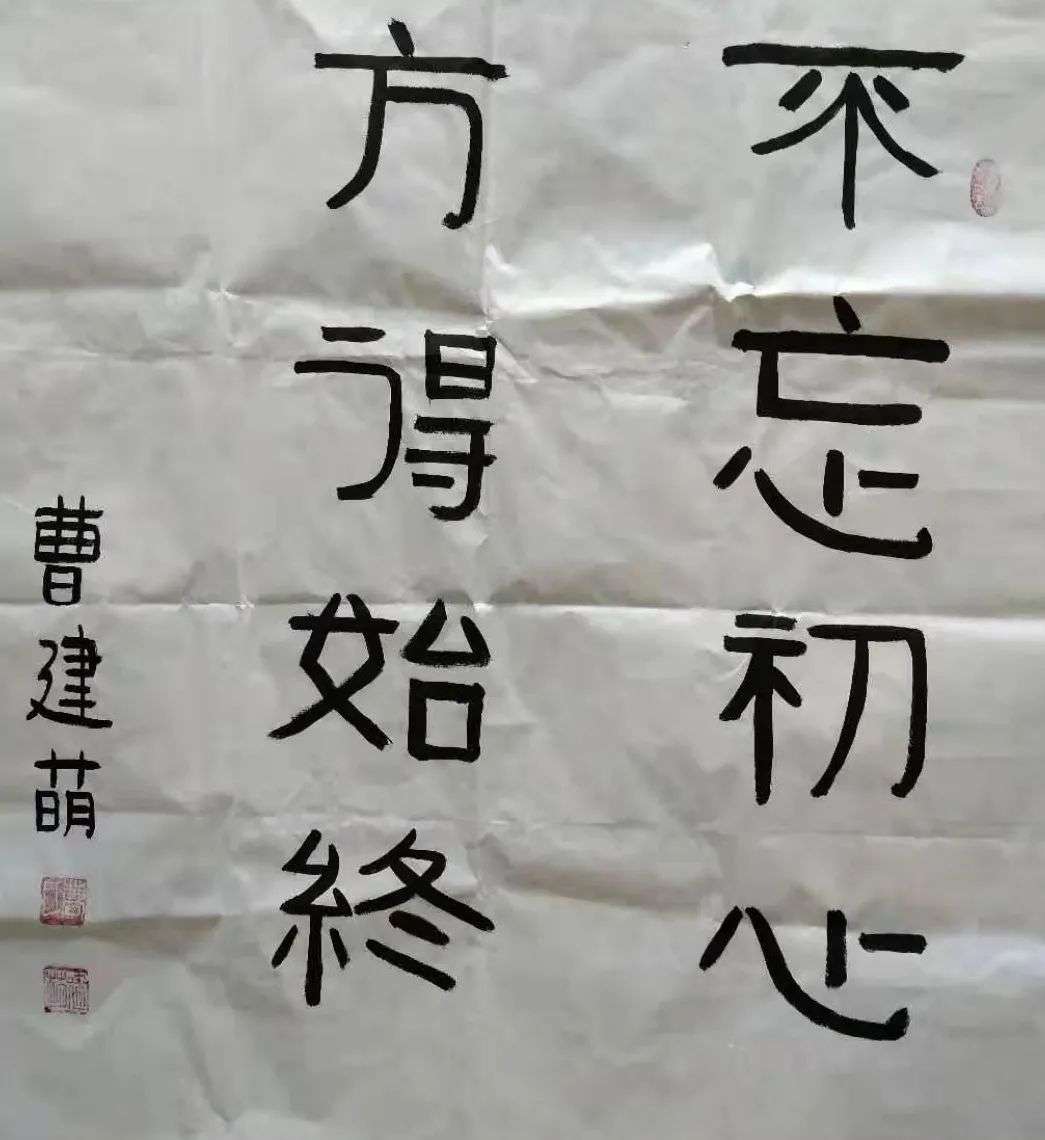 不忘初心
方得始終
曹建萌